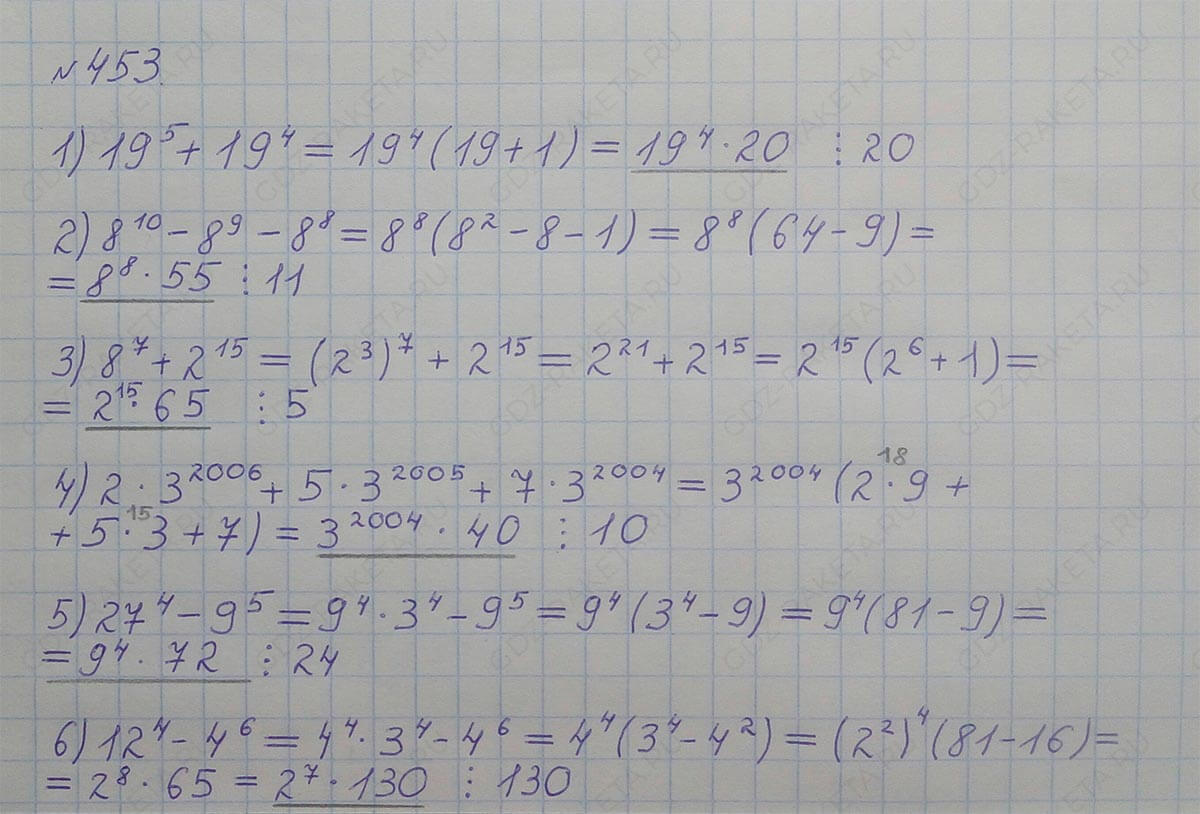 №453.
1) 19⁵ + 19⁴ = 19⁴(19+1) = 19⁴ · 20 ⋮ 20
2) 8¹⁰ − 8⁹ − 8⁸ = 8⁸(8² − 8 − 1) = 8⁸(64 − 9) =
= 8⁸ · 55 ⋮ 11
3) 8⁷ + 2¹⁵ = (2³)⁷ + 2¹⁵ = 2²¹ + 2¹⁵ = 2¹⁵(2⁶ + 1) =
= 2¹⁵ · 65 ⋮ 5
18
4) 2 · 3²⁰⁰⁶ + 5 · 3²⁰⁰⁵ + 7 · 3²⁰⁰⁴ = 3²⁰⁰⁴(2 · 9 +
15
+ 5 · 3 + 7) = 3²⁰⁰⁴ · 40 ⋮ 10
5) 27⁴ − 9⁵ = 9⁴ · 3⁴ − 9⁵ = 9⁴(3⁴ − 9) = 9⁴(81 − 9) =
= 9⁴ · 72 ⋮ 24
6) 12⁴ − 4⁶ = 4⁴ · 3⁴ − 4⁶ = 4⁴(3⁴ − 4²) = (2²)⁴(81 − 16) =
= 2⁸ · 65 = 2⁷ · 130 ⋮ 130